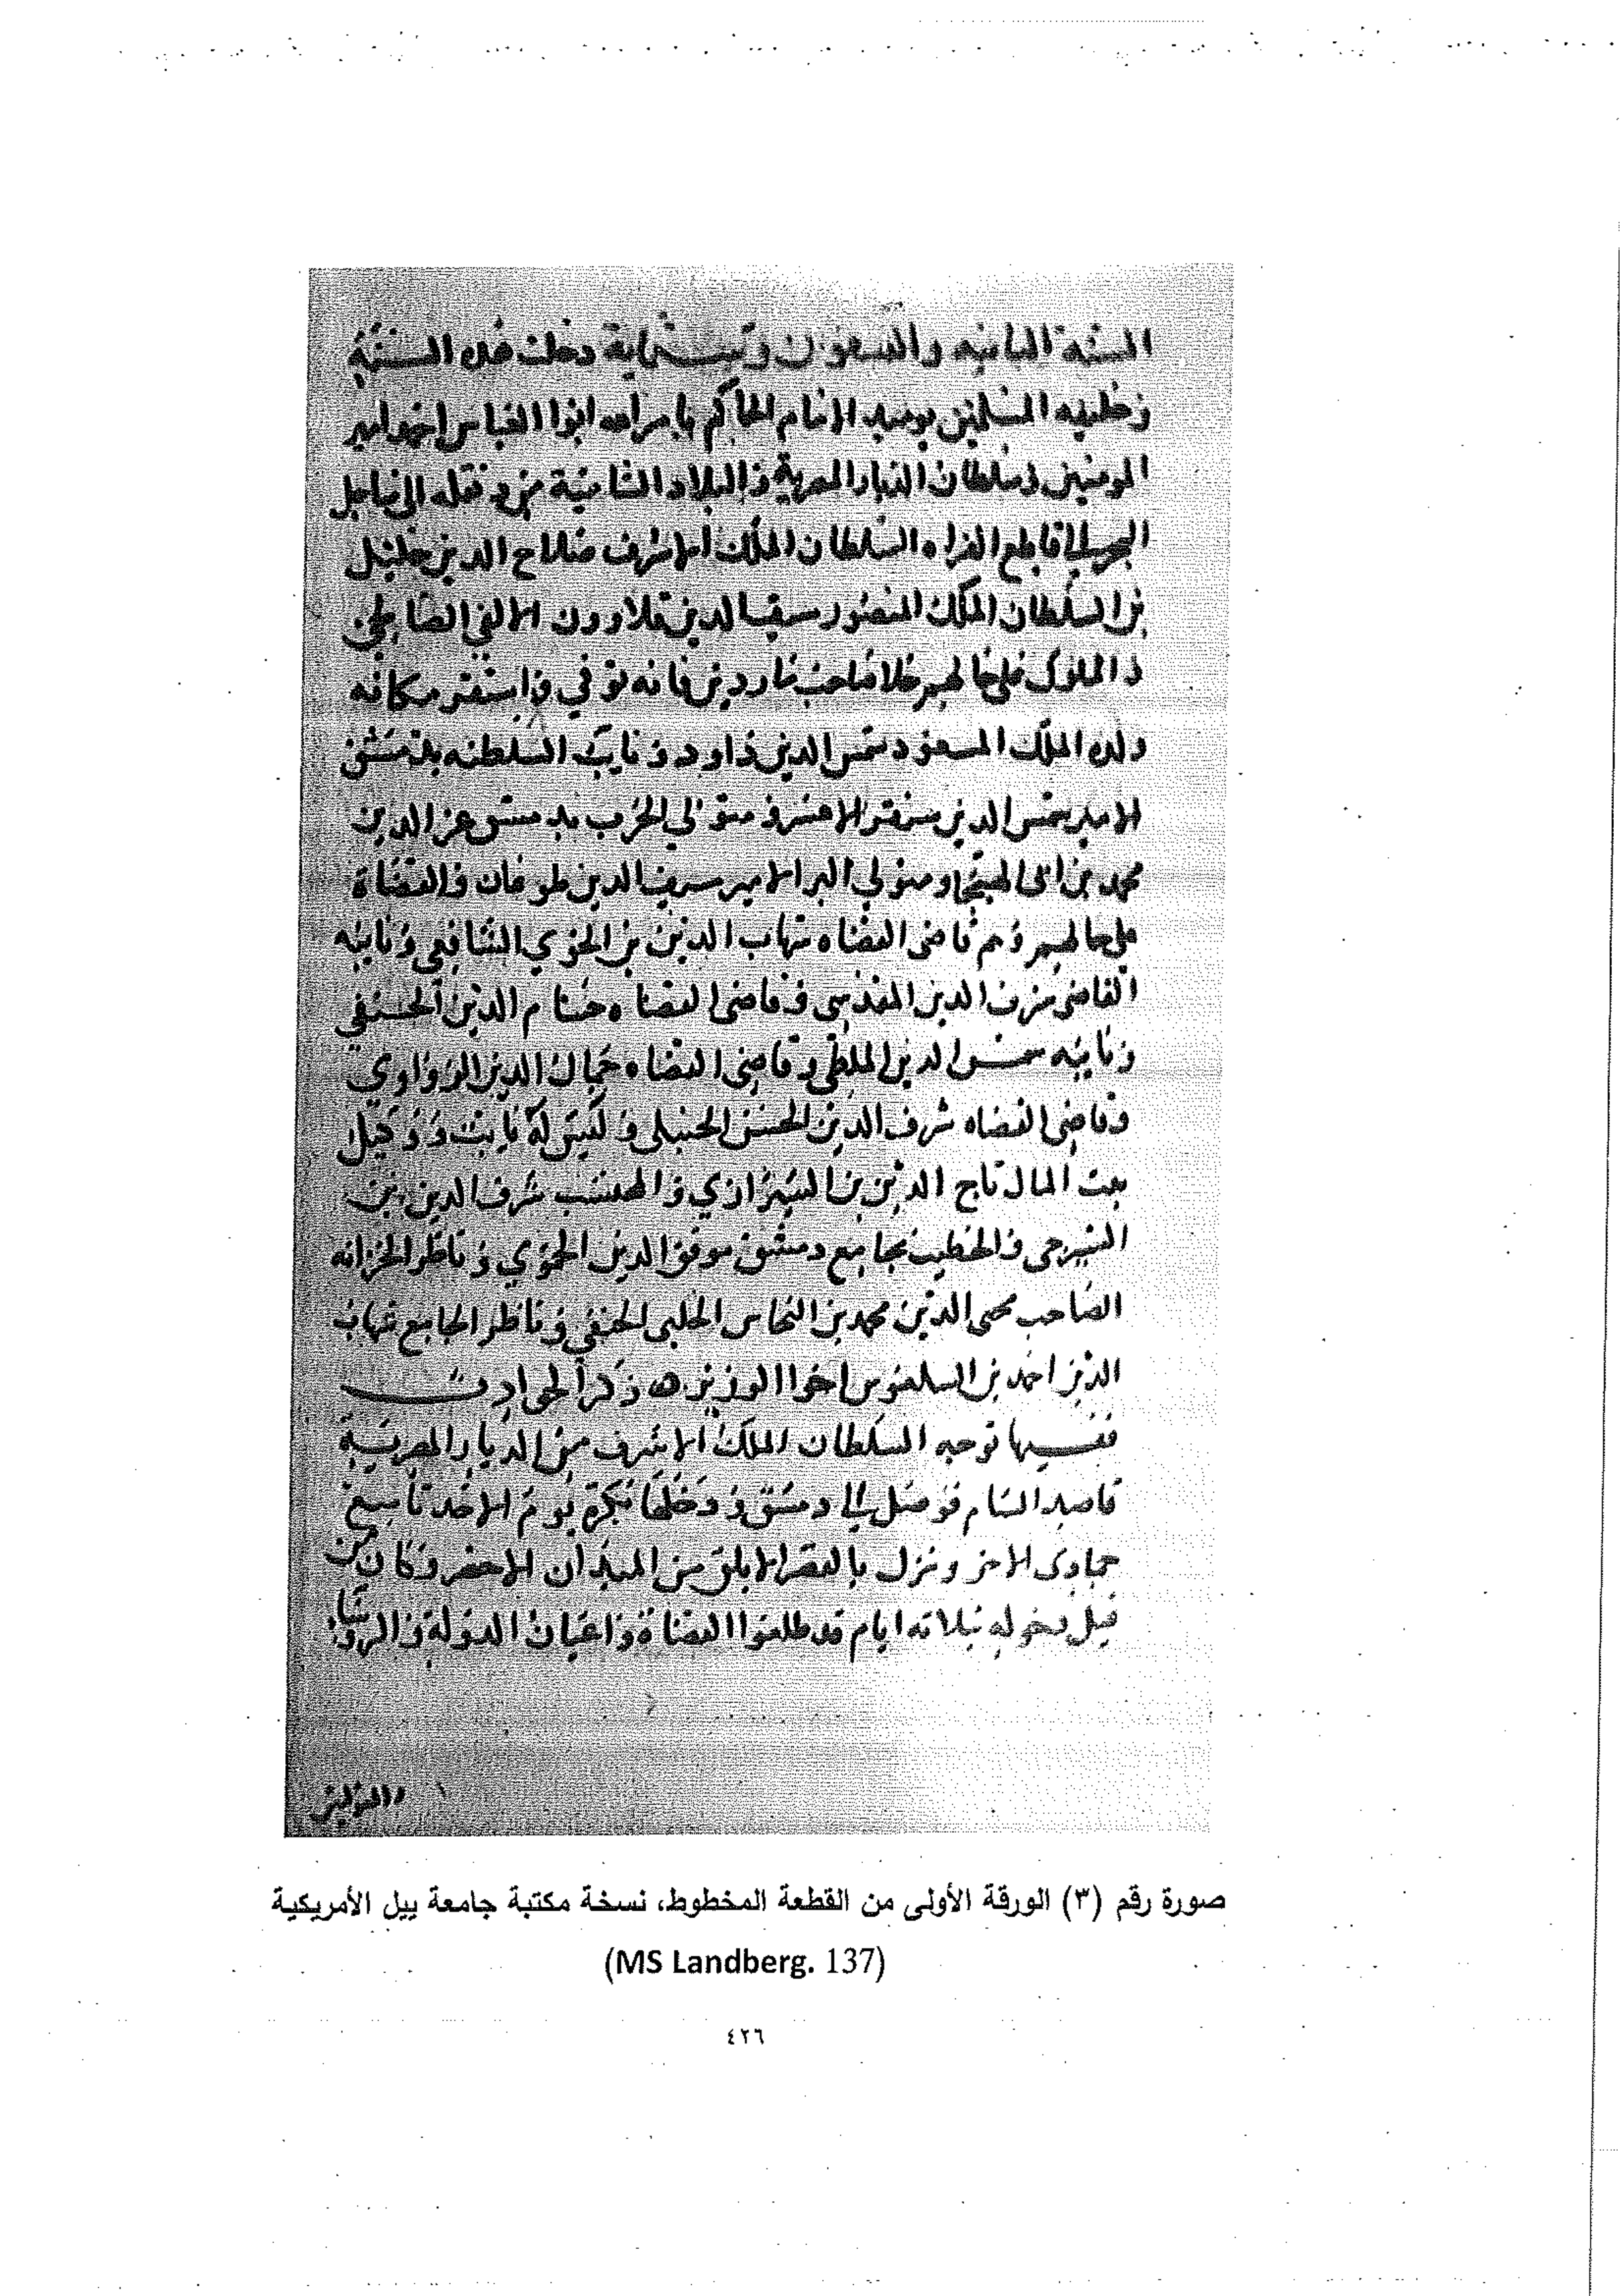 السنة الثانية والتسعون وستماية دخلت هذه السنة
وخليفه المسلمين يوميد الامام الحاكم بامر الله ابوا العباس احمد امير
المومنين وسلطان الديار المصرية والبلاد الشامية
السلطان الملك الاشرف صلاح الدين خليل
بن السلطان الملك المنصور سيف الدين قلاوون الالفي الصالحي
و الملوك على حالهم خلا صاحب ماردين فانه توفي واستقر مكانه
ولده الملك المسعود شمس الدين داود و نايب السلطنه بدمشق
الامير شمس الدين سنقر الاعسر و متولي الحرب بدمشق عز الدين
محمد بن ابى الهيجا ومتولي البر الامير سيف الدين طوغان والقضاة
على حالهم وهم قاضى القضاه شهاب الدين بن الخوي الشافعي ونايبه
القاضى شرف الدين المقدسى وقاضى القضاه حسام الدين الحنفي
ونايبه شمس الدين الملطى وقاضى القضاه جمال الدين الزواوي
وقاضى القضاه شرف الدين الحسن الحنبلى وليس له نايب و وكيل
بيت المال تاج الدين بن الشيرازي والمحتسب شرف الدين بن
الشيرجى والخطيب بجامع دمشق موفق الدين الحموي وناظر الخزانه
الصاحب محى الدين محمد بن النحاس الحلبى الحنفي وناظر الجامع شهاب
الدين احمد بن السلعوس اخوا الوزير ذكر الحوادث
ففيها توجه السلطان الملك الاشرف من الديار المصرية
قاصد الشام فوصل الى دمشق ودخلها بكرة يوم الاحد تاسع
جمادى الاخر ونزل بالقصر الابلق من الميدان الاخضر وكان من
قبل دخوله بثلاثه ايام قد طلعوا القضاة واعيان الدولة والروسا
صورة رقم (٣) الورقة الأولى من القطعة المخطوط، نسخة مكتبة جامعة ييل الأمريكية
(MS Landberg. 137)
٤٢٦